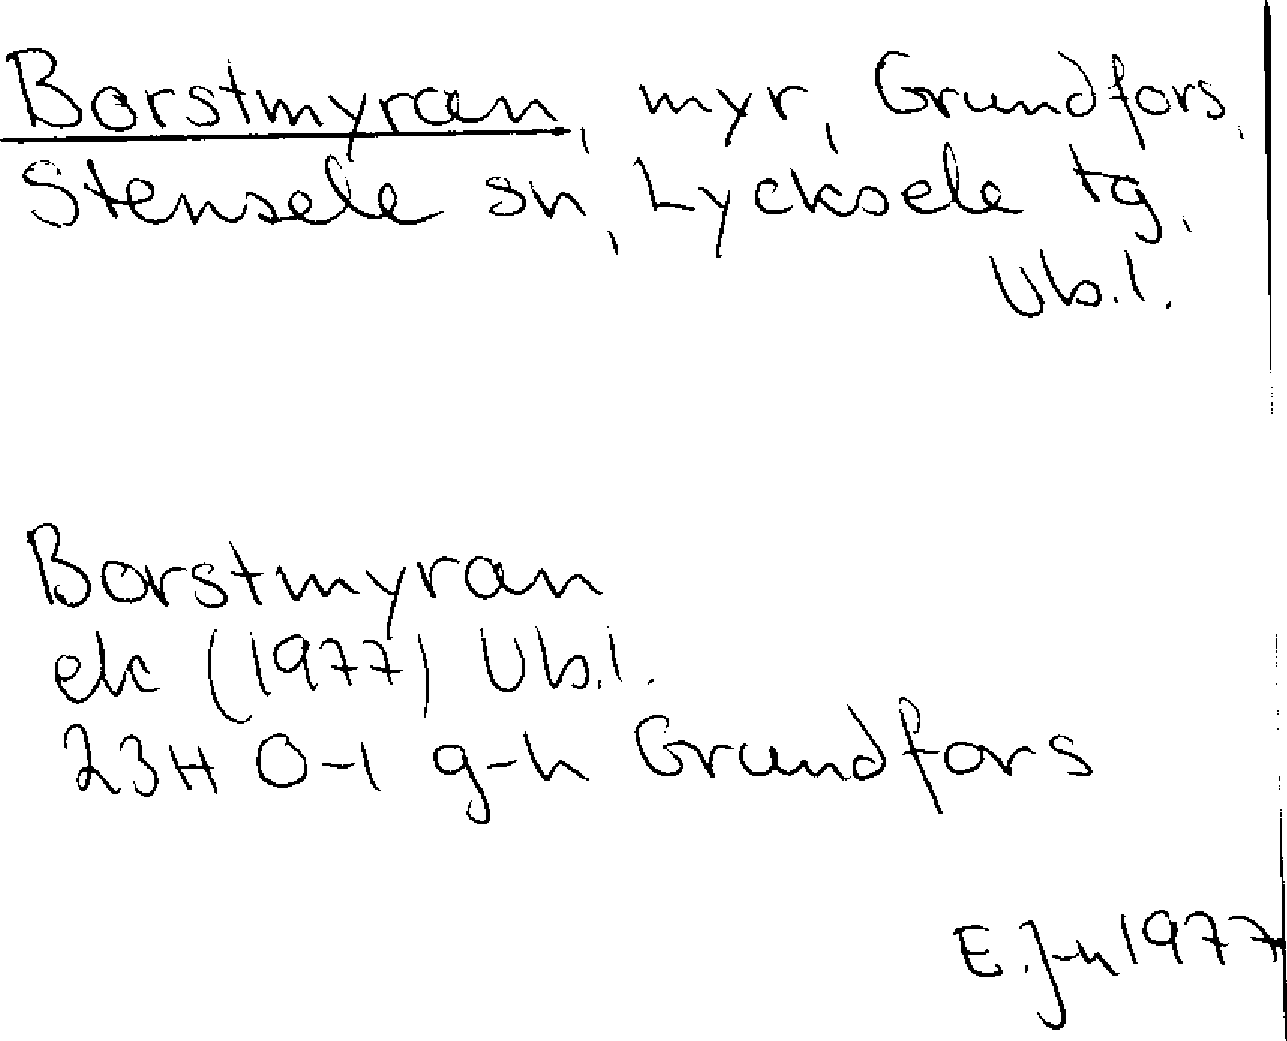 Borstmyran, myr, Grundfors,
Stensele sn, Lycksele tg,
Vb.l.
Borstmyran
ek (1977) Vb.l.
23H 0-1 g-h Grundfors
E.J-n 1977